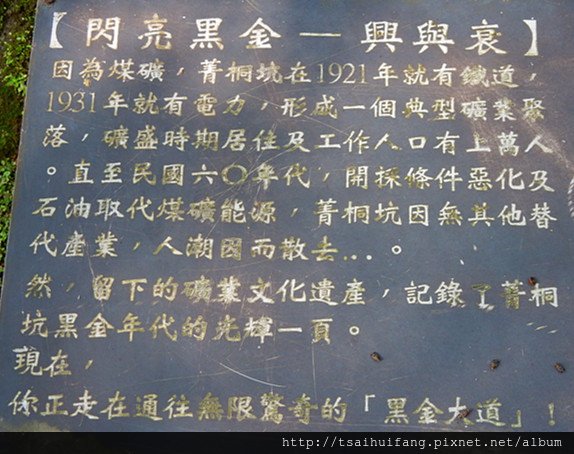 【閃亮黑金－興與衰】
因為煤礦，菁桐坑在1921年就有鐵道，
1931年就有電力，形成一個典型礦業聚
落，礦盛時期居住及工作人口有上萬人
。直至民國六〇年代，開採條件惡化及
石油取代煤礦能源，菁桐坑因無其他替
代產業，人潮因而散去...。
然，留下的礦業文化遺產，記錄了菁桐
坑黑金年代的光輝一頁。
現在，
你正走在通往無限驚奇的「黑金大道」！
http://tsaihuifang.pixnet.net/album